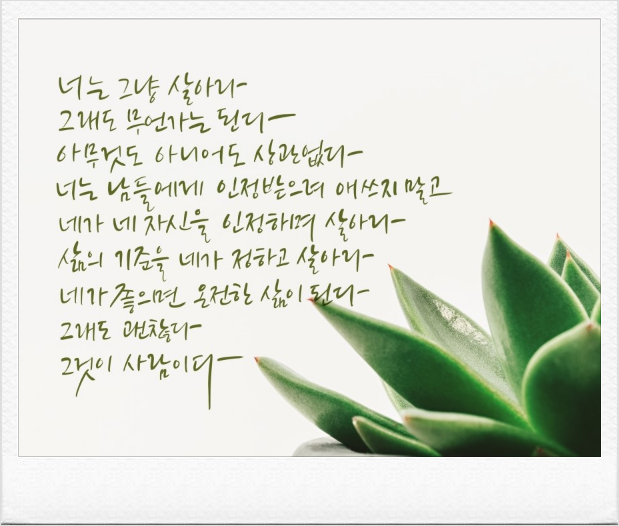 너는 그냥 살아라
그래도 무언가는 된다
아무것도 아니어도 상관없다
너는 남들에게 인정받으려 애쓰지 말고
네가 네 자신을 인정하며 살아라
삶의 기준을 네가 정하고 살아라
네가 좋으면 온전한 삶이 된다
그래도 괜찮다
그것이 사람이다